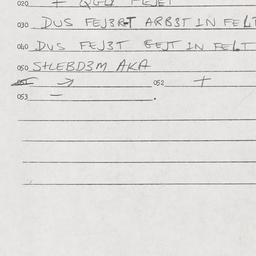 020 + QGU FEJET
030 DUS FEJ3RT ARB3T IN FELT
040 DUS FEJ3T GEJT IN FELT
050 StLEBD3M AKA
051 → 052 +
053 — .